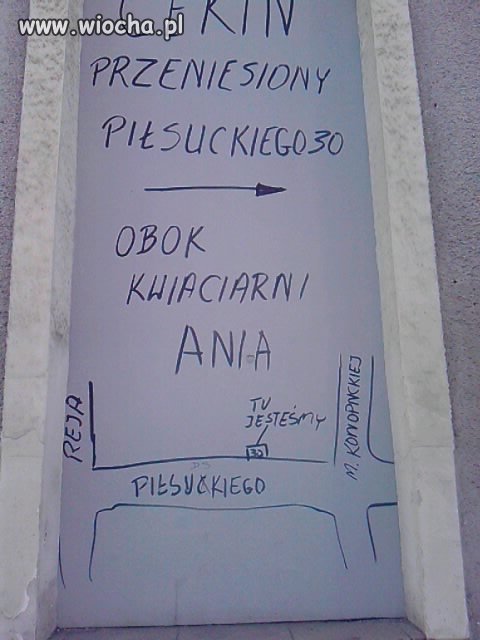 www.wiocha.pl
PRZENIESIONY
PIŁSUCKIEGO 30
OBOK
KWIACIARNI
ANIA
REJA
TU
JESTEŚMY
30
M. KONOPNICKIEJ
PIŁSUCKIEGO